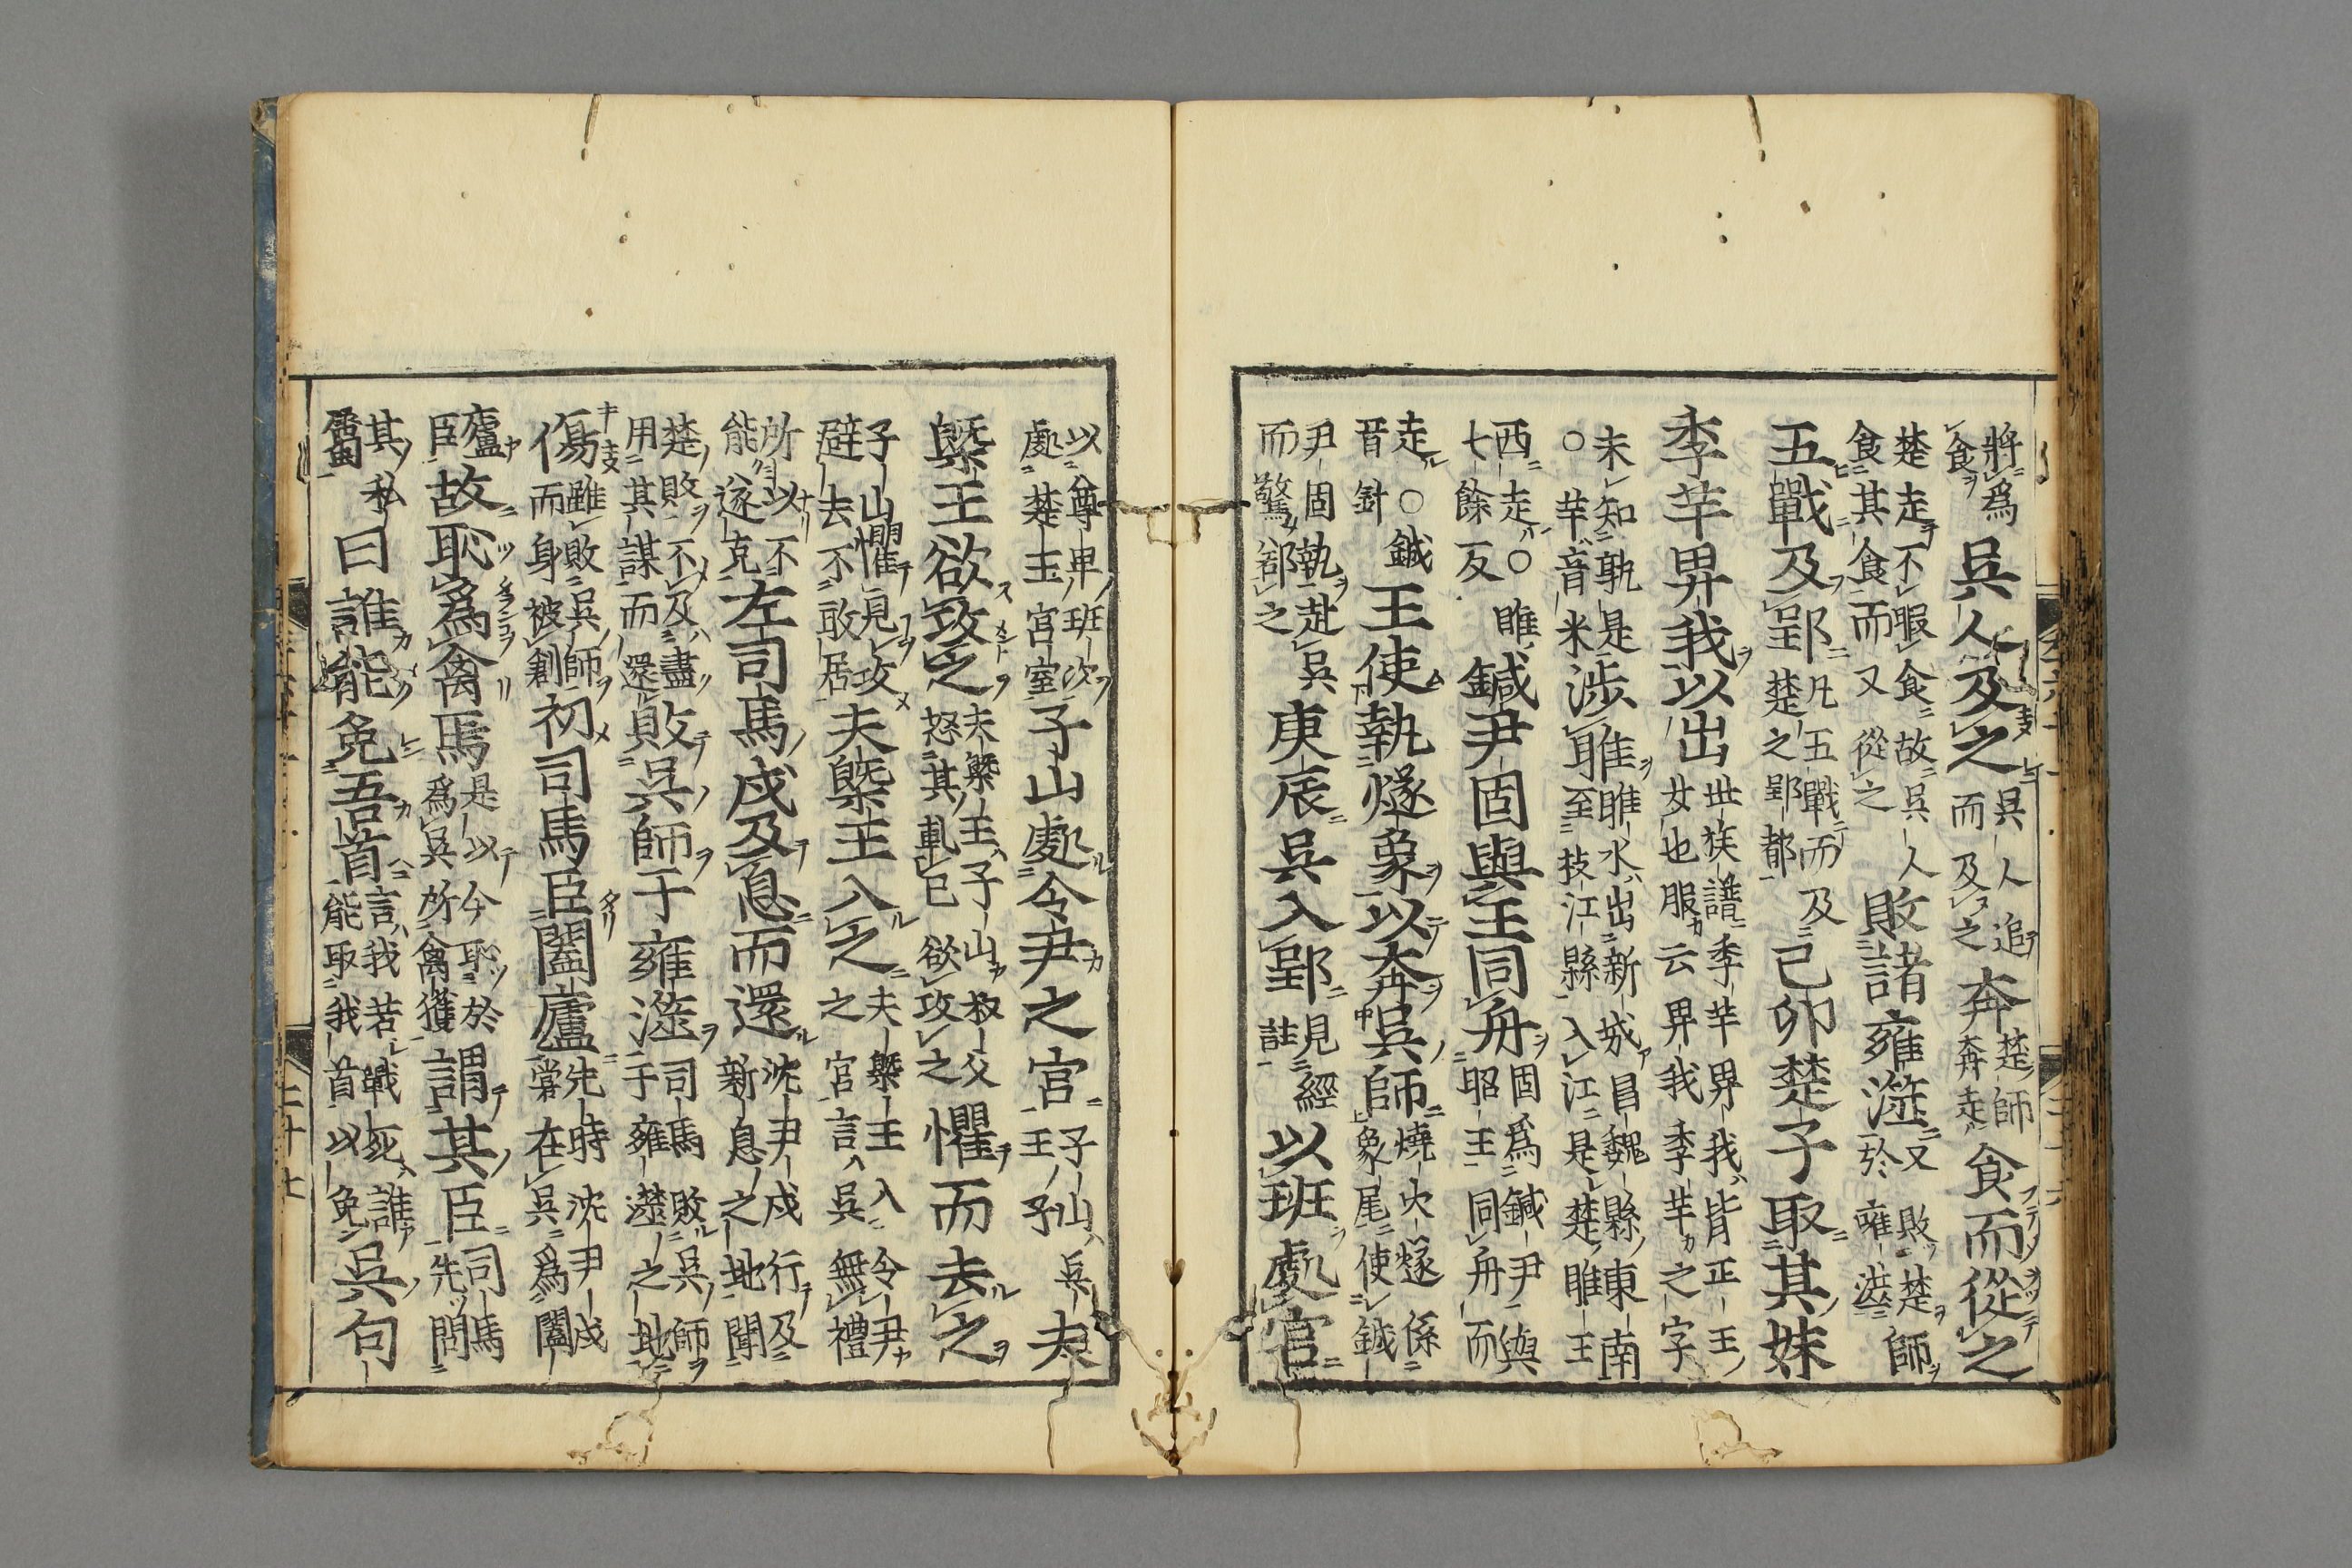 將爲食吳人及之吳人追而及之奔楚師奔走食而從之
楚走不暇食故吳人食其食而又從之敗諸雍澨又敗楚師於雍澨
五戰及郢凡五戰而及楚之郢都己卯楚子取其妹
季芈畀我以出世族譜季芈畀我皆正王女也服云畀我季芈之字
未知孰是○芈音米涉睢睢水出新城昌魏縣東南至枝江縣入江是楚睢王
西走○睢七餘反鍼尹固與王同舟固爲鍼尹與昭王同舟而
走○鍼音針王使執燧象以奔吳師燒火燧係象尾使鍼
尹固執赴吳而驚郤之庚辰吳入郢見經註以班處宮
以尊卑班次處楚王宮室子山處令尹之宮子山吳王子夫
槩王欲攻之夫槩王子山叔父怒其輒已欲攻之懼而去之
子山懼見攻避去不敢居夫槩王入之夫槩王入令尹之宮言吳無禮
所以不能遂克左司馬戌及息而還沈尹戌行及新息之地聞
楚敗不及盡用其謀而還敗吳師于雍澨司馬敗吳師于雍澨之地
傷雖敗吳師而身被創初司馬臣闔廬先時沈尹戌嘗在吳爲闔
廬臣故恥爲禽焉是以今恥於爲吳所禽獲謂其臣司馬先問
其私屬曰誰能免吾首言我若戰死誰能取我首以免吳句